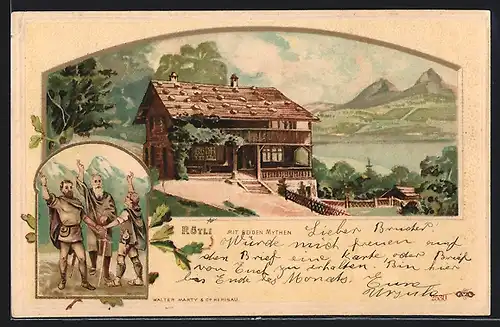 RÜTLI MIT BEIDEN MYTHEN
Lieber Bruder!
Würde mich freuen auf
den Brief eine Karte oder Brief
von Euch zu erhalten. Bin hier
bis Ende des Monats. Eure
WALTER MARTY & CY HERISAU.
2530